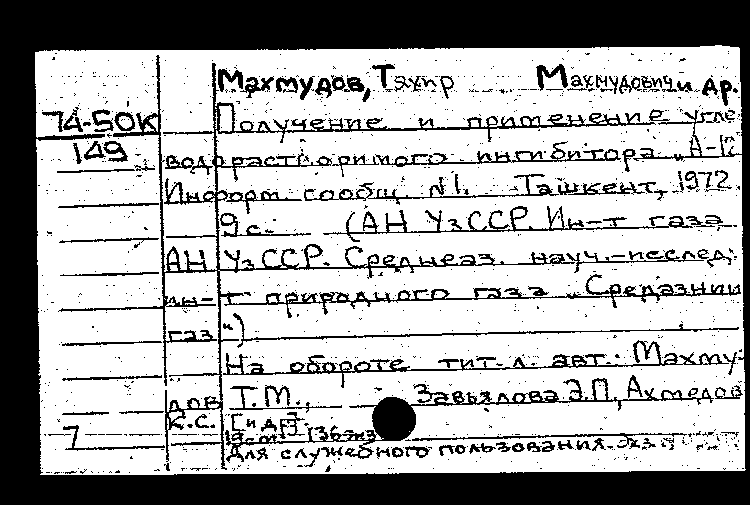 Махмудов, Тяхир Махмудович и др.
74-50К Получение и применение угле
149 водорастворимого ингибитора „А-12
Информ. сообщ. №1. Ташкент, 1972.
9с. (АН УзССР. Ин-т газа
АН УзССР. Среднеаз. науч.-исслед.
ин-т природного газа „Средазнии
газ“)
На обороте тит. л. авт.: Махму-
дов Т.М., Завьялова Э.П., Ахмедов
К.С. [и др.]
7
Для служебного пользования. Экз.